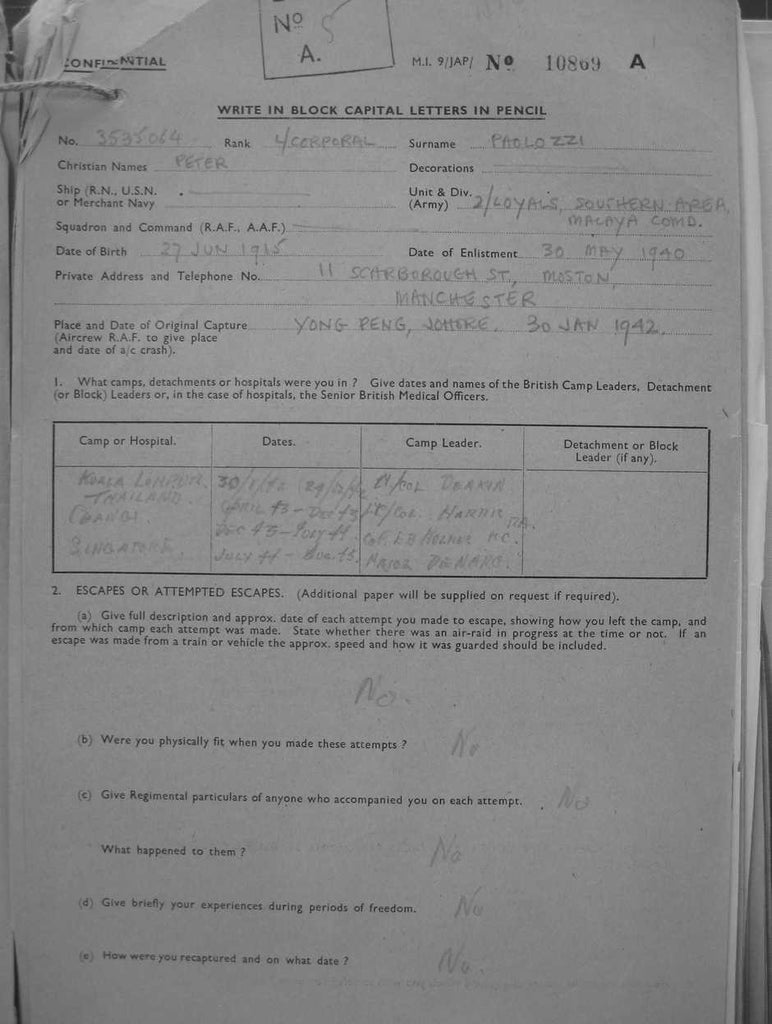 No 5
A.
CONFIDENTIAL
M.I. 9/JAP/ No 10869 A
WRITE IN BLOCK CAPITAL LETTERS IN PENCIL
No. 3535064 Rank L/CORPORAL Surname PAOLOZZI
Christian Names PETER Decorations
Ship (R.N., U.S.N. or Merchant Navy
Unit & Div. (Army) 2/LOYALS, SOUTHERN AREA,
MALAYA COMD.
Squadron and Command (R.A.F., A.A.F.)
Date of Birth 27 JUN 1915 Date of Enlistment 30 MAY 1940
Private Address and Telephone No. 11 SCARBOROUGH ST., MOSTON,
MANCHESTER
Place and Date of Original Capture YONG PENG, JOHORE. 30 JAN 1942.
(Aircrew R.A.F. to give place
and date of a/c crash).
1. What camps, detachments or hospitals were you in ? Give dates and names of the British Camp Leaders, Detachment
(or Block) Leaders or, in the case of hospitals, the Senior British Medical Officers.
Camp or Hospital. Dates. Camp Leader. Detachment or Block
Leader (if any).
KUALA LUMPUR. 30/1/42 Lt/COL DEAKIN
THAILAND. APRIL 43 - DEC 43 Lt/Col. HARRIS RA.
CHANGI. DEC 43 - JULY 44 Col. E B HOLMES MC.
SINGAPORE. JULY 44 - AUG. 45. MAJOR
2. ESCAPES OR ATTEMPTED ESCAPES. (Additional paper will be supplied on request if required).
(a) Give full description and approx. date of each attempt you made to escape, showing how you left the camp, and
from which camp each attempt was made. State whether there was an air-raid in progress at the time or not. If an
escape was made from a train or vehicle the approx. speed and how it was guarded should be included.
No.
(b) Were you physically fit when you made these attempts ? No
(c) Give Regimental particulars of anyone who accompanied you on each attempt. No
What happened to them ? No
(d) Give briefly your experiences during periods of freedom. No
(e) How were you recaptured and on what date ? No.